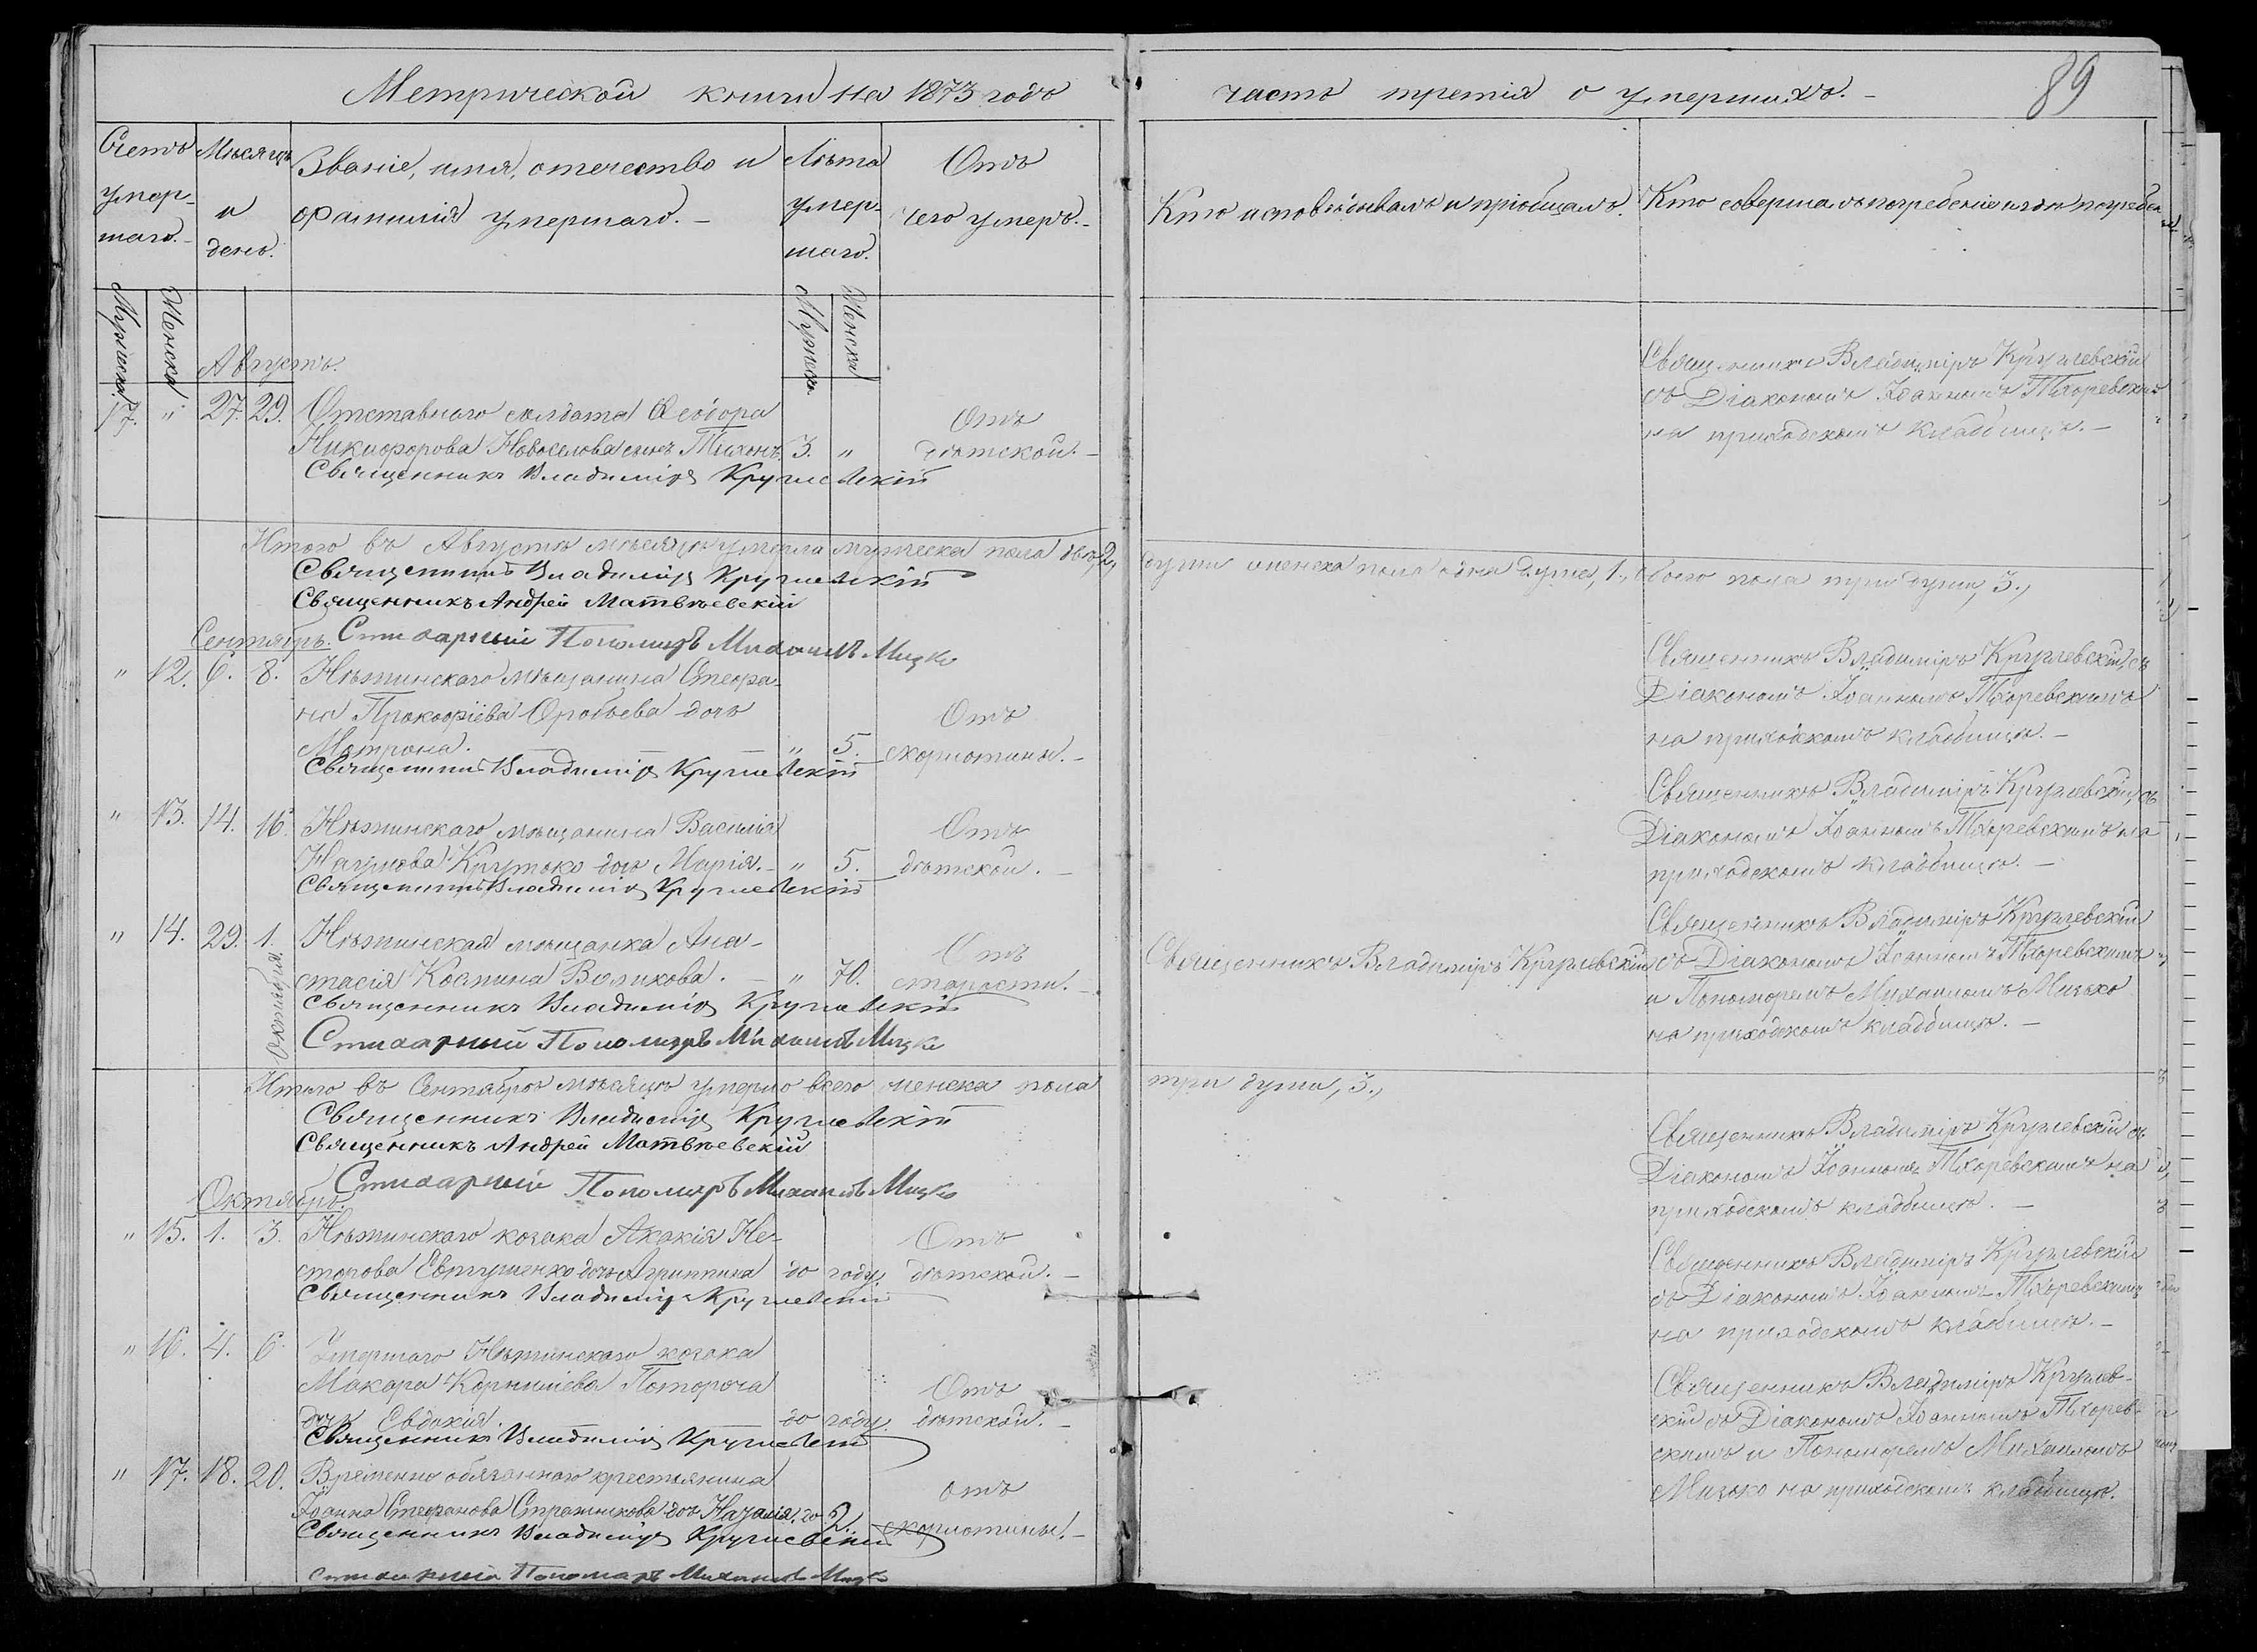 Метрической книги на 1873 годъ
часть третія о умершихъ.
89
Счетъ умер- шаго.
Мѣсяцъ и день.
Званіе, имя, отечество и фамилія умершаго.
Лѣта умер- шаго.
Отъ чего умеръ.
Кто исповѣдывалъ и пріобщалъ.
Кто совершалъ погребеніе и гдѣ погребен
Мужеска
Женска
Мужеска
Женска
Августъ.
17. " 27. 29. Отставнаго солдата Ѳеодора
Никифорова Новоселова сынъ Тихонъ 3. "
Отъ
дѣтской.
Священникъ Владиміръ Круглевскій
Священникъ Владиміръ Круглевскій
съ Діакономъ Іоанномъ Тхоревскимъ
на приходскомъ кладбищѣ.
Итого въ Августѣ мѣсяцѣ умерло мужеска пола двѣ, 2, души женска пола одна душа, 1, обоего пола три души, 3,
Священникъ Владиміръ Круглевскій
Священникъ Андрей Матвѣевскій
Стихарный Пономаръ Михаилъ Мизко
Сентябрь.
" 12. 6. 8. Нѣжинскаго мѣщанина Стефа-
на Прокофіева Оробьева дочь
Матрона. " 5.
Отъ
скорлотины.
Священникъ Владиміръ Круглевскій
Священникъ Владиміръ Круглевскій съ
Діакономъ Іоанномъ Тхоревскимъ
на приходскомъ кладбищѣ.
" 13. 14. 16. Нѣжинскаго мѣщанина Василія
Наумова Крутько дочь Марія. " 5.
Отъ
дѣтской.
Священникъ Владиміръ Круглевскій
Священникъ Владиміръ Круглевскій, съ
Діакономъ Іоанномъ Тхоревскимъ на
приходскомъ кладбищѣ.
" 14. 29. 1. Нѣжинская мѣщанка Ана-
Октября.
стасія Космина Воликова. " 70.
Отъ
старости.
Священникъ Владиміръ Круглевскій
Стихарный Пономаръ Михаилъ Мизко
Священникъ Владиміръ Круглевскій
Священникъ Владиміръ Круглевскій
съ Діакономъ Іоанномъ Тхоревскимъ
и Пономаремъ Михаиломъ Мизько
на приходскомъ кладбищѣ.
Итого въ Сентябрѣ мѣсяцѣ умерло всего женска пола три души, 3,
Священникъ Владиміръ Круглевскій
Священникъ Андрей Матвѣевскій
Стихарный Пономаръ Михаилъ Мизко
Октябрь.
" 15. 1. 3. Нѣжинскаго козака Акакія Не-
сторова Евтушенко дочь Агриппина до году.
Отъ
дѣтской.
Священникъ Владиміръ Круглевскій
Священникъ Владиміръ Круглевскій съ
Діакономъ Іоанномъ Тхоревскимъ на
приходскомъ кладбищѣ.
" 16. 4. 6. Умершаго Нѣжинскаго козака
Макара Корниліева Потороча
дочь Евдокія. до году.
Отъ
дѣтской.
Священникъ Владиміръ Круглевскій
Священникъ Владиміръ Круглевскій
съ Діакономъ Іоанномъ Тхоревскимъ
на приходскомъ кладбищѣ.
" 17. 18. 20. Временно обязаннаго крестьянина
Іоанна Стефанова Стражникова дочь 2.
отъ
скорлотины.
Священникъ Владиміръ Круглевскій
Стихарный Пономаръ Михаилъ Мизко
Священникъ Владиміръ Круглев-
скій съ Діакономъ Іоанномъ Тхорев-
скимъ и Пономаремъ Михаиломъ
Мизько на приходскомъ кладбищѣ.